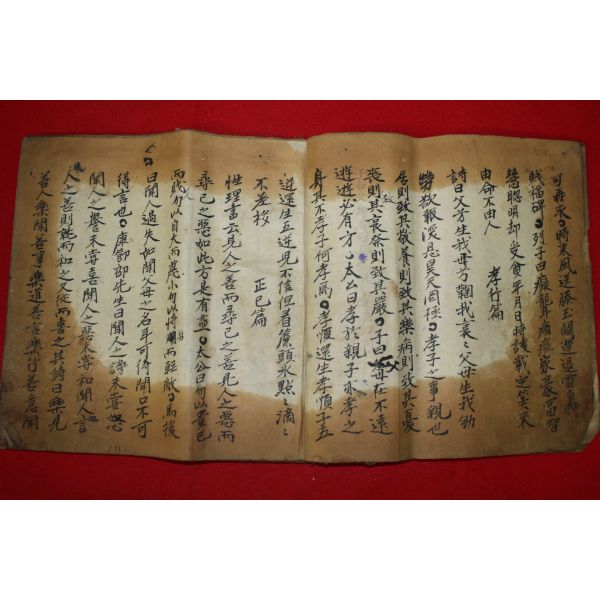 可再求○時來風送藤王閣運退雷轟
賤福碑○列子曰癡聾痼瘂家豪富智
慧聰明却受貧年月日時該載定筭來
由命不由人 孝行篇
詩曰父兮生我母兮鞠我哀〻父母生我劬
勞欲報深恩昊天罔極○孝子之事親也
居則致其敬養則致其樂病則致其憂
喪則致其哀祭則致其嚴○子曰父母在不遠
遊遊必有方○太公曰孝於親子亦孝之
身其不孝子何孝焉○孝順還生孝順子五
逆還生五逆兒不信但看簷頭水點〻滴〻
不差移 正己篇
性理書云見人之善而尋己之善見人之惡而
尋己之惡如此方是有益○太公曰勿以貴己
而賤人勿以自大而蔑小勿以恃勇而輕敵○馬援
曰聞人過失如聞父母之名耳可得聞口不可
得言也○康節邵先生曰聞人之謗未嘗怒
聞人之譽未嘗喜聞人之惡未嘗和聞人言
人之善則就而和之又從而喜之其詩曰樂見
善人樂聞善事樂道善言樂行善意聞